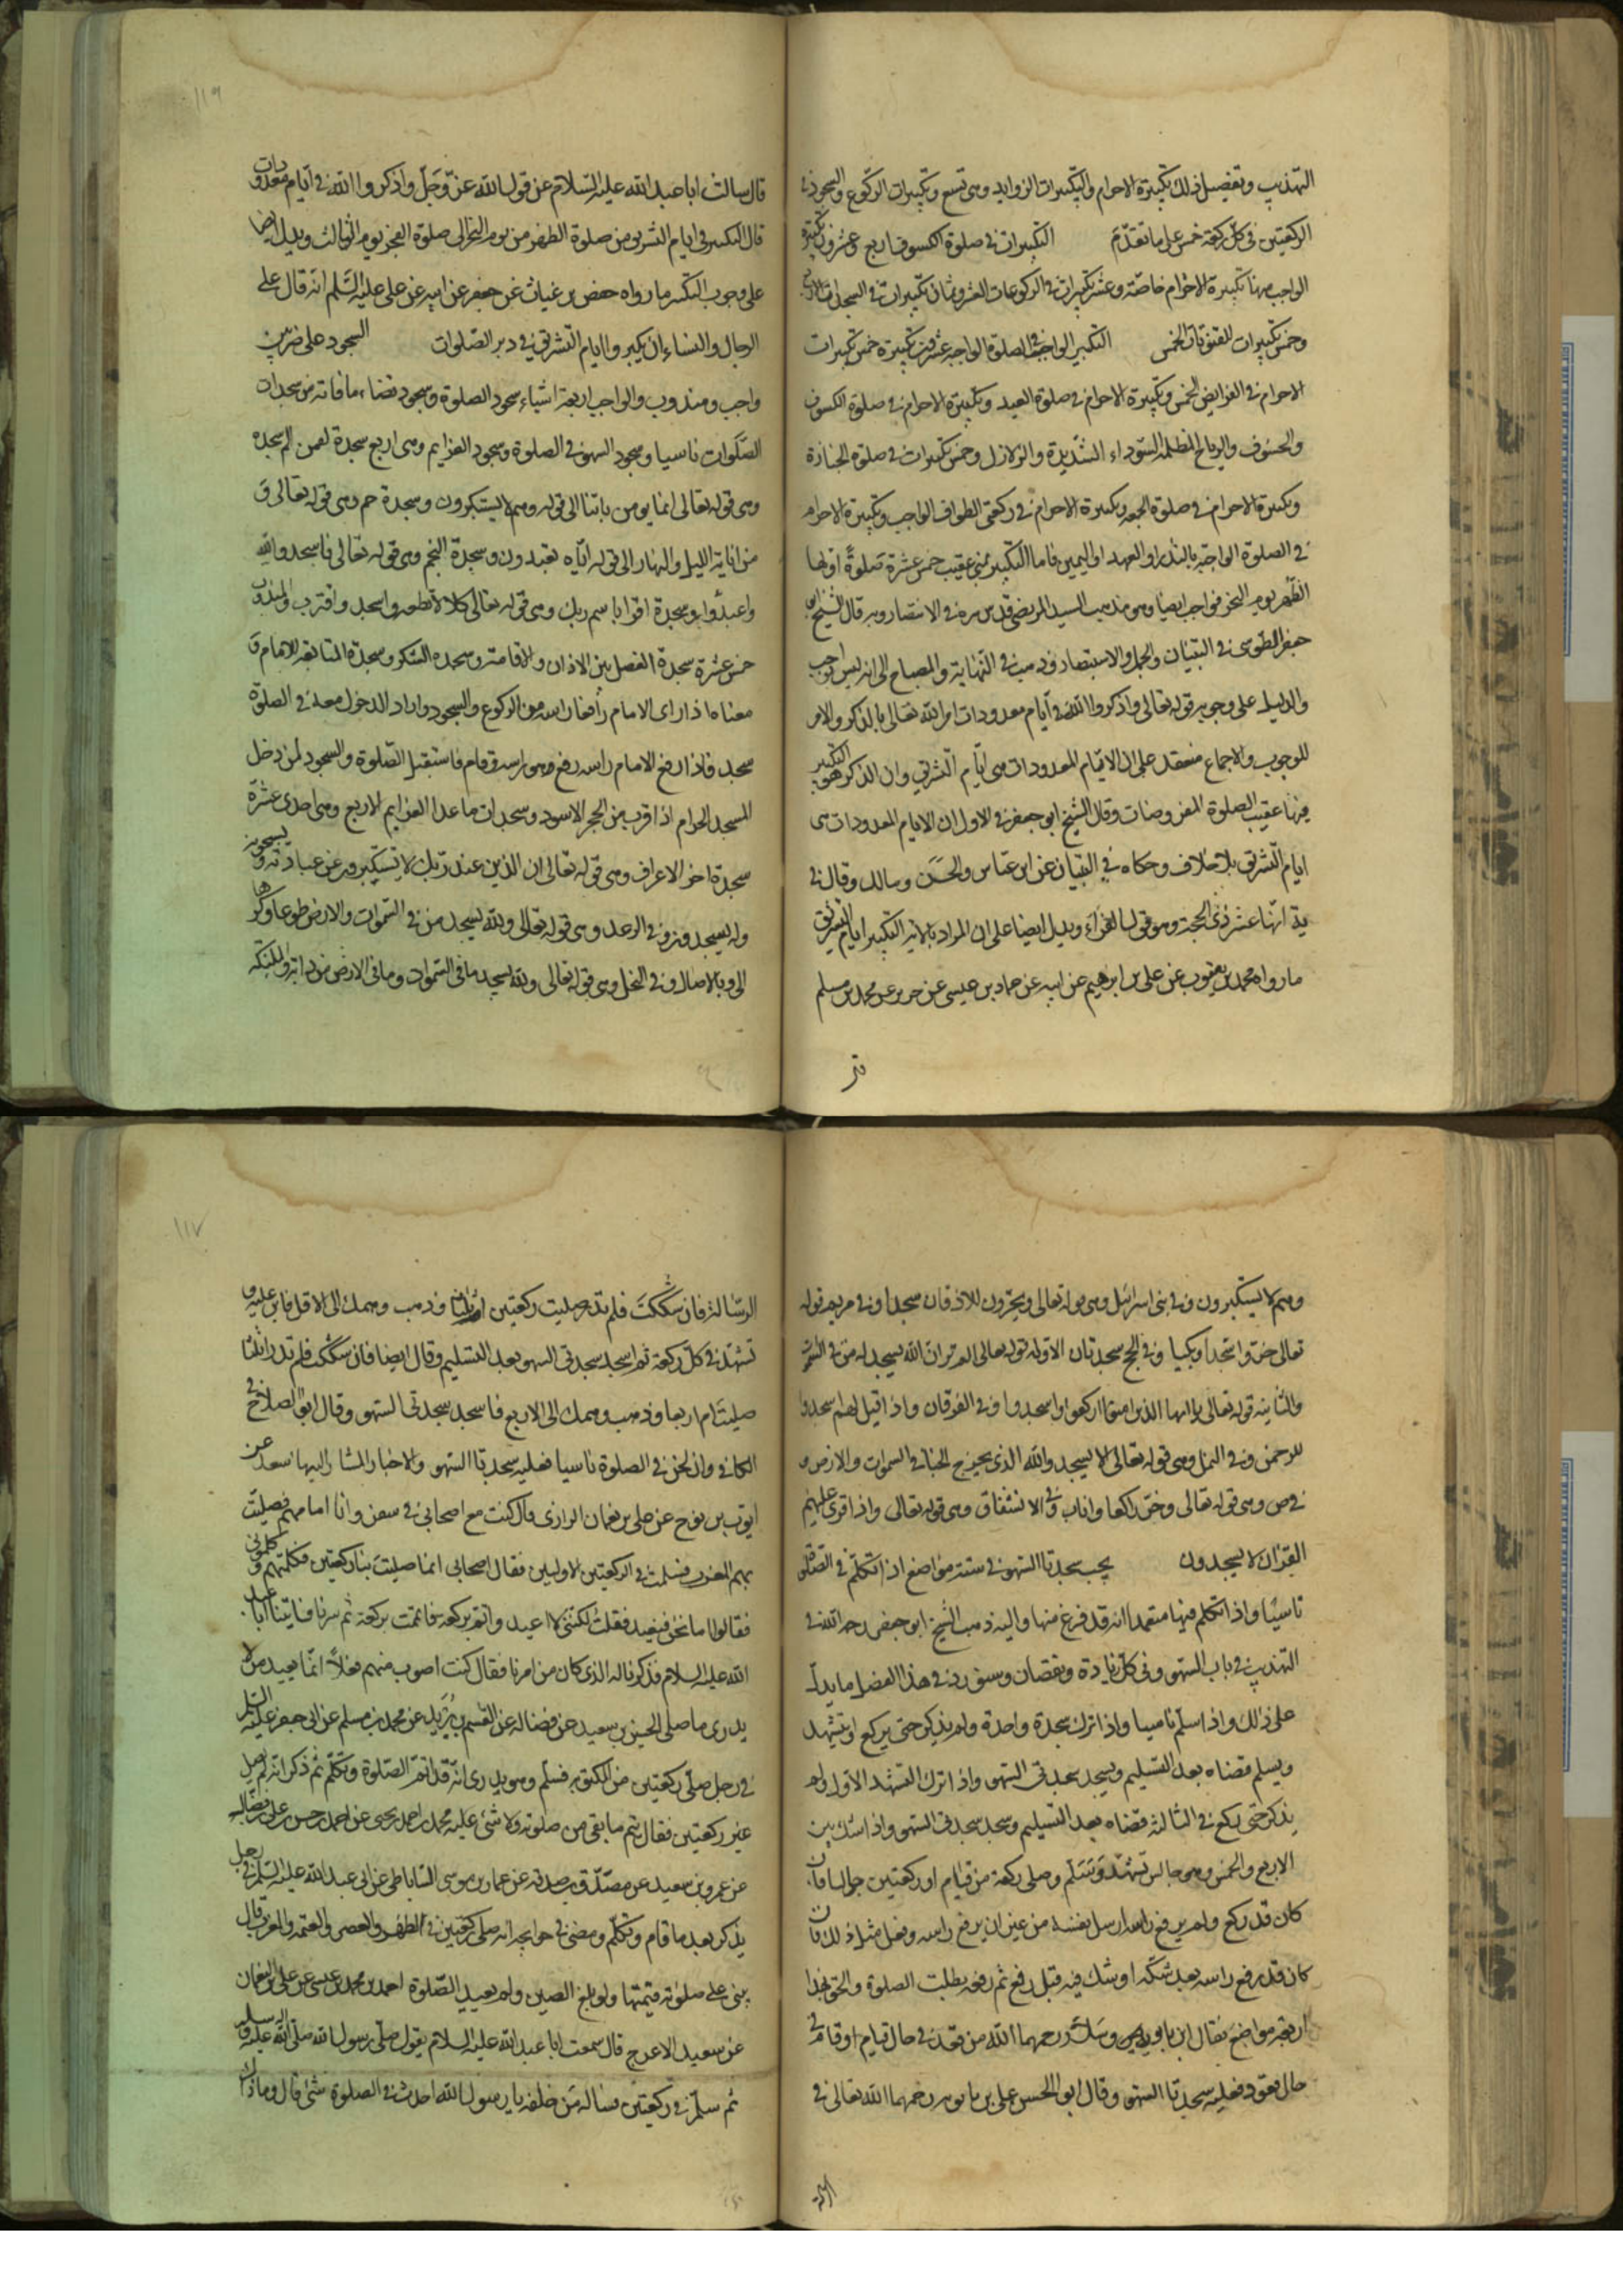 التهذيب وتفصيل ذلك تكبيرة الاحرام والتكبيرات الزوايد وهى تسع وتكبيرات الركوع والسجود فى
الركعتين فى كل ركعة خمس على ما تقدم التكبيرات فى صلوة الكسوف اربع وعشرون تكبيرة
الواجب منها تكبيرة الاحرام خاصة وعشر تكبيرات فى الركوعات العشر وثمان تكبيرات فى السجدات
وخمس تكبيرات للقنوتات الخمس التكبير الواجب فى الصلوة الواجبة عشرون تكبيرة خمس تكبيرات
الاحرام فى الفرايض الخمس وتكبيرة الاحرام فى صلوة العيد وتكبيرة الاحرام فى صلوة الكسوف
والخسوف والرياح المظلمة السوداء الشديدة والزلازل وخمس تكبيرات فى صلوة الجنازة
وتكبيرة الاحرام فى صلوة الجمعة وتكبيرة الاحرام فى ركعتى الطواف الواجب وتكبيرة الاحرام
فى الصلوة الواجبة بالنذر او العهد او اليمين فاما التكبير بمنى عقيب خمس عشرة صلوة اولها
الظهر يوم النحر فواجب ايضا وهو مذهب السيد المرتضى قدس سره فى الانتصار وبه قال الشيخ ابو
جعفر الطوسى فى التبيان والجمل والاستبصار وذهب فى النهاية والمصباح الى انه ليس بواجب
والدليل على وجوبه قوله تعالى واذكروا الله فى ايام معدودات امر الله تعالى بالذكر والامر
للوجوب والاجماع منعقد على ان الايام المعدودات هى ايام التشريق وان الذكر هو التكبير
فيها عقيب الصلوة المفروضات وقال الشيخ ابو جعفر فى الاول ان الايام المعدودات هى
ايام التشريق بلا خلاف وحكاه فى التبيان عن ابن عباس والحسن ومالك وقال فى
ية انها عشر ذى الحجة وهو قول الفراء ويدل ايضا على ان المراد بالاية التكبير ايام التشريق
ما رواه محمد بن يعقوب عن على بن ابرهيم عن ابيه عن حماد بن عيسى عن حريز عن محمد بن مسلم
قال سالت ابا عبد الله عليه السلام عن قول الله عز وجل واذكروا الله فى ايام معدودات
قال التكبير فى ايام التشريق من صلوة الظهر من يوم النحر الى صلوة الفجر يوم الثالث ويدل ايضا
على وجوب التكبير ما رواه حفص بن غياث عن جعفر عن ابيه عن على عليه السلم انه قال على
الرجال والنساء ان يكبروا ايام التشريق فى دبر الصلوات السجود على ضربين
واجب ومندوب والواجب اربعة اشياء سجود الصلوة وسجود قضاء ما فاته من سجدات
الصلوات ناسيا وسجود السهو فى الصلوة وسجود العزايم وهى اربع سجدة لقمن الم سجدة
وهى قوله تعالى انما يومن باياتنا الى قوله وهم لا يستكبرون وسجدة حم وهى قوله تعالى و
من اياته الليل والنهار الى قوله اياه تعبدون وسجدة النجم وهى قوله تعالى فاسجدوا لله
واعبدوا وسجدة اقرا باسم ربك وهى قوله تعالى كلا لا تطعه واسجد واقترب والمندوب
خمس عشرة سجدة الفصل بين الاذان والاقامة وسجدة الشكر وسجدة المتابعة للامام و
معناه اذا راى الامام رافعا راسه من الركوع والسجود واراد الدخول معه فى الصلوة
سجد فاذا رفع الامام راسه رفع هو راسه وقام فاستقبل الصلوة والسجود لمن دخل
المسجد الحرام اذا قرب من الحجر الاسود وسجدات ما عدا العزايم الاربع وهى احدى عشرة
سجدة اخر الاعراف وهى قوله تعالى ان الذين عند ربك لا يستكبرون عن عبادته ويسبحونه
وله يسجدون وفى الرعد وهى قوله تعالى ولله يسجد من فى السموات والارض طوعا وكرها
الى وبالاصال وفى النحل وهى قوله تعالى ولله يسجد ما فى السموات وما فى الارض من دابة والملئكة
وهم لا يستكبرون وفى بنى اسرائيل وهى قوله تعالى ويخرون للاذقان سجدا وفى مريم قوله
تعالى خروا سجدا وبكيا وفى الحج سجدتان الاولى قوله تعالى الم تر ان الله يسجد له من فى السموات
والثانية قوله تعالى يا ايها الذين امنوا اركعوا واسجدوا وفى الفرقان واذا قيل لهم اسجدوا
للرحمن وفى النمل وهى قوله تعالى الا يسجدوا لله الذى يخرج الخبا فى السموات والارض و
فى ص وهى قوله تعالى وخر راكعا واناب وفى الانشقاق وهى قوله تعالى واذا قرى عليهم
القران لا يسجدون يجب سجدتا السهو فى ستة مواضع اذا تكلم فى الصلوة
ناسيا واذا تكلم فيها متعمدا انه قد فرغ منها واليه ذهب الشيخ ابو جعفر رحمه الله فى
التهذيب فى باب السهو وفى كل زيادة ونقصان وسنورد فى هذا الفصل ما يدل
على ذلك واذا سلم ناسيا واذا ترك سجدة واحدة ولم يذكر حتى يركع او يتشهد
ويسلم قضاه بعد التسليم ويسجد سجدتى السهو واذا ترك التشهد الاول ولم
يذكر حتى ركع فى الثالثة قضاه بعد التسليم وسجد سجدتى السهو واذا شك بين
الاربع والخمس وهو جالس تشهد وسلم وصلى ركعة من قيام او ركعتين جوالسا وان
كان قد ركع ولم يرفع راسه ارسل نفسه من غير ان يرفع راسه وفعل مثل ذلك فان
كان قد رفع راسه بعد شكه او شك فيه قبل رفع ثم رفعه بطلت الصلوة والحق بهذا
اربعة مواضع فقال ابن بابويه وسلار رحمهما الله من قعد فى حال قيام او قام فى
حال قعود فعليه سجدتا السهو وقال ابو الحسن على بن بابويه رحمهما الله تعالى فى
الرسالة فان شككت فلم تدر صليت ركعتين وذهب وهمك الى الاقل فابن عليه و
تشهد فى كل ركعة ثم اسجد سجدتى السهو بعد التسليم وقال ايضا فان شككت فلم تدر اثلثا
صليت ام اربعا وذهب وهمك الى الاربع فاسجد سجدتى السهو وقال ابو الصلاح
الكافى وان لحن فى الصلوة ناسيا فعليه سجدتا السهو والاخبار المشار اليها سعد عن
ايوب بن نوح عن على بن نعمان الرازى قال كنت مع اصحابى فى سفر وانا امامهم فصليت
بهم المغرب فسلمت فى الركعتين الاوليين فقال اصحابى انما صليت بنا ركعتين فكلمتهم وكلمونى
فقالوا اما نحن فنعيد فقلت لكنى لا اعيد واتم بركعة فاتممت بركعة ثم سرنا فاتينا ابا عبد
الله عليه السلام فذكرنا له الذى كان من امرنا فقال كنت اصوب منهم فعلا انما يعيد من لا
يدرى ما صلى الحسين بن سعيد عن فضاله عن القسم بن بريد عن محمد بن مسلم عن ابى جعفر عليه السلم
فى رجل صلى ركعتين من المكتوبة فسلم وهو يرى انه قد اتم الصلوة وتكلم ثم ذكر انه لم يصل
غير ركعتين فقال يتم ما بقى من صلوته ولا شئ عليه محمد بن احمد بن يحيى عن احمد بن حسن بن على بن فضال
عن عمرو بن سعيد عن مصدق بن صدقة عن عمار بن موسى الساباطى عن ابى عبد الله عليه السلم فى رجل
يذكر بعد ما قام وتكلم ومضى فى حوايجه انه صلى ركعتين فى الظهر والعصر والعتمة والمغرب قال
يبنى على صلوته فيتمها ولو بلغ الصين ولم يعيد الصلوة احمد بن محمد بن عيسى عن على بن النعمان
عن سعيد الاعرج قال سمعت ابا عبد الله عليه السلام يقول صلى رسول الله صلى الله عليه واله وسلم
ثم سلم فى ركعتين فساله من خلفه يا رسول الله احدث فى الصلوة شئ قال وما ذاك